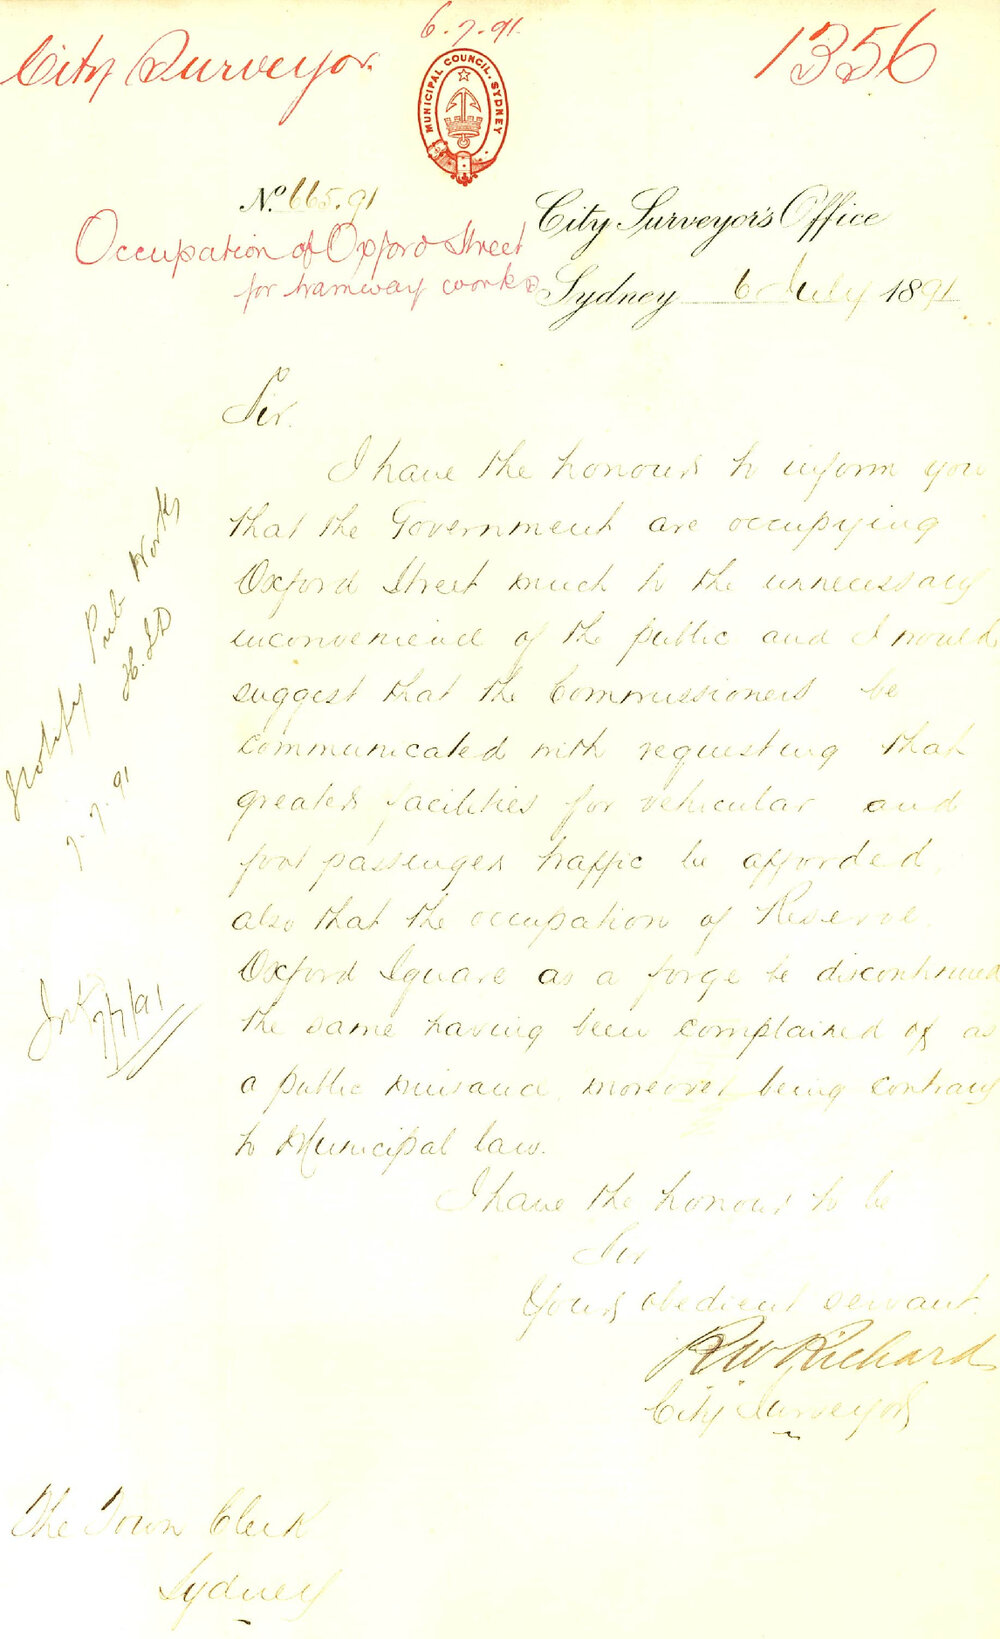 6.7.91.
City Surveyor.
1356
MUNICIPAL COUNCIL. SYDNEY
No. 665.91
City Surveyor's Office
Occupation of Oxford Street
for tramway works
Sydney 6 July 1891
Sir.
I have the honour to inform you
that the Government are occupying
Oxford Street much to the unnecessary
inconvenience of the public and I would
suggest that the Commissioners be
communicated with requesting that
greater facilities for vehicular and
foot passenger traffic be afforded,
also that the occupation of Reserve
Oxford Square as a forge be discontinued
the same having been complained of as
a public nuisance, moreover being contrary
to Municipal law.
I have the honour to be
Sir
Your obedient servant.
R W Richards
City Surveyor
The Town Clerk
Sydney
Notify Pub Works
7.7.91
7/7/91